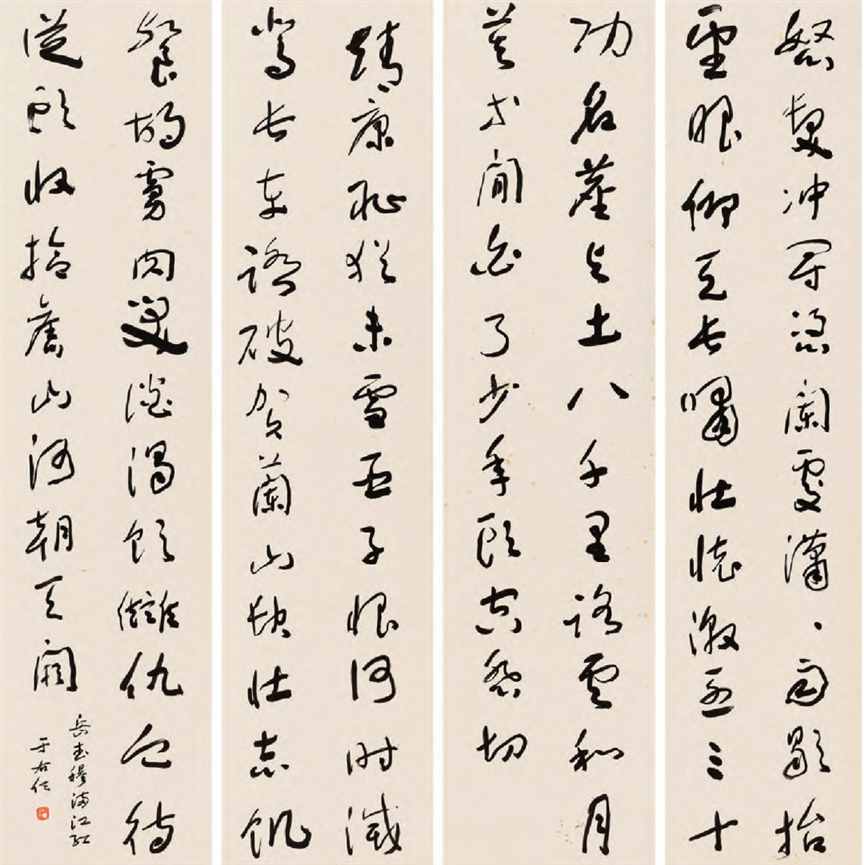 怒髮冲冠憑闌處瀟、雨歇抬
望眼仰天長嘯壯懷激烈三十
功名塵與土八千里路雲和月
莫等閒白了少年頭空悲切
靖康恥猶未雪臣子恨何時滅
駕長車踏破賀蘭山缺壯志飢
餐胡虜肉笑談渴飲讎仇血待
從頭收拾舊山河朝天闕
岳武穆滿江紅
于右任